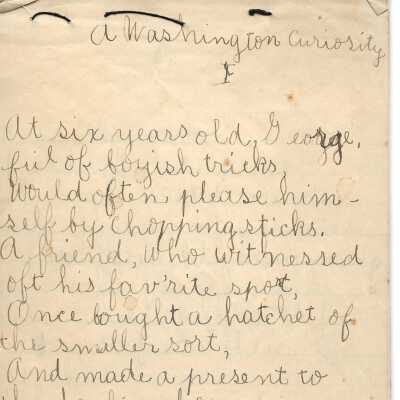 A Washington Curiosity
I
At six years old, George,
full of boyish tricks,
Would often please him -
self by chopping sticks.
A friend, who witnessed
oft his fav'rite spot,
Once bought a hatchet of
the smaller sort,
And made a present to